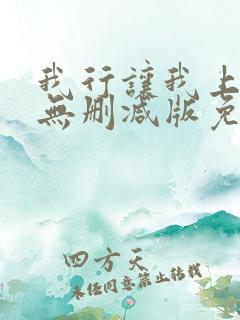 我行讓我上
無刪減版免
四方天
未經同意禁止轉載